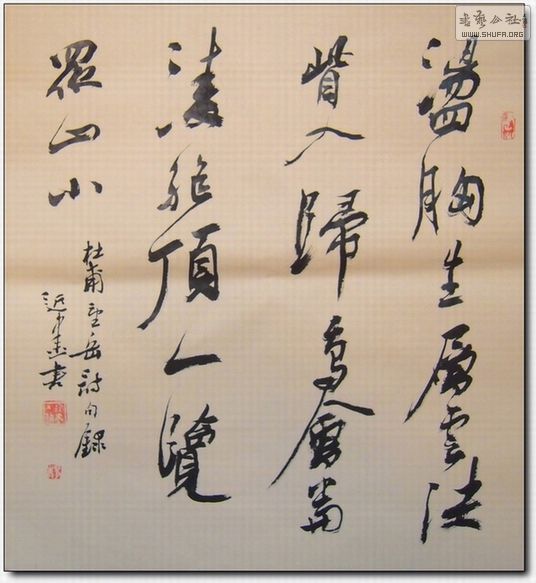 盪胸生層雲決
眥入歸鳥會當
凌絕頂一覽
眾山小
杜甫望岳詩句錄
書
書藝公社
WWW.SHUFA.ORG